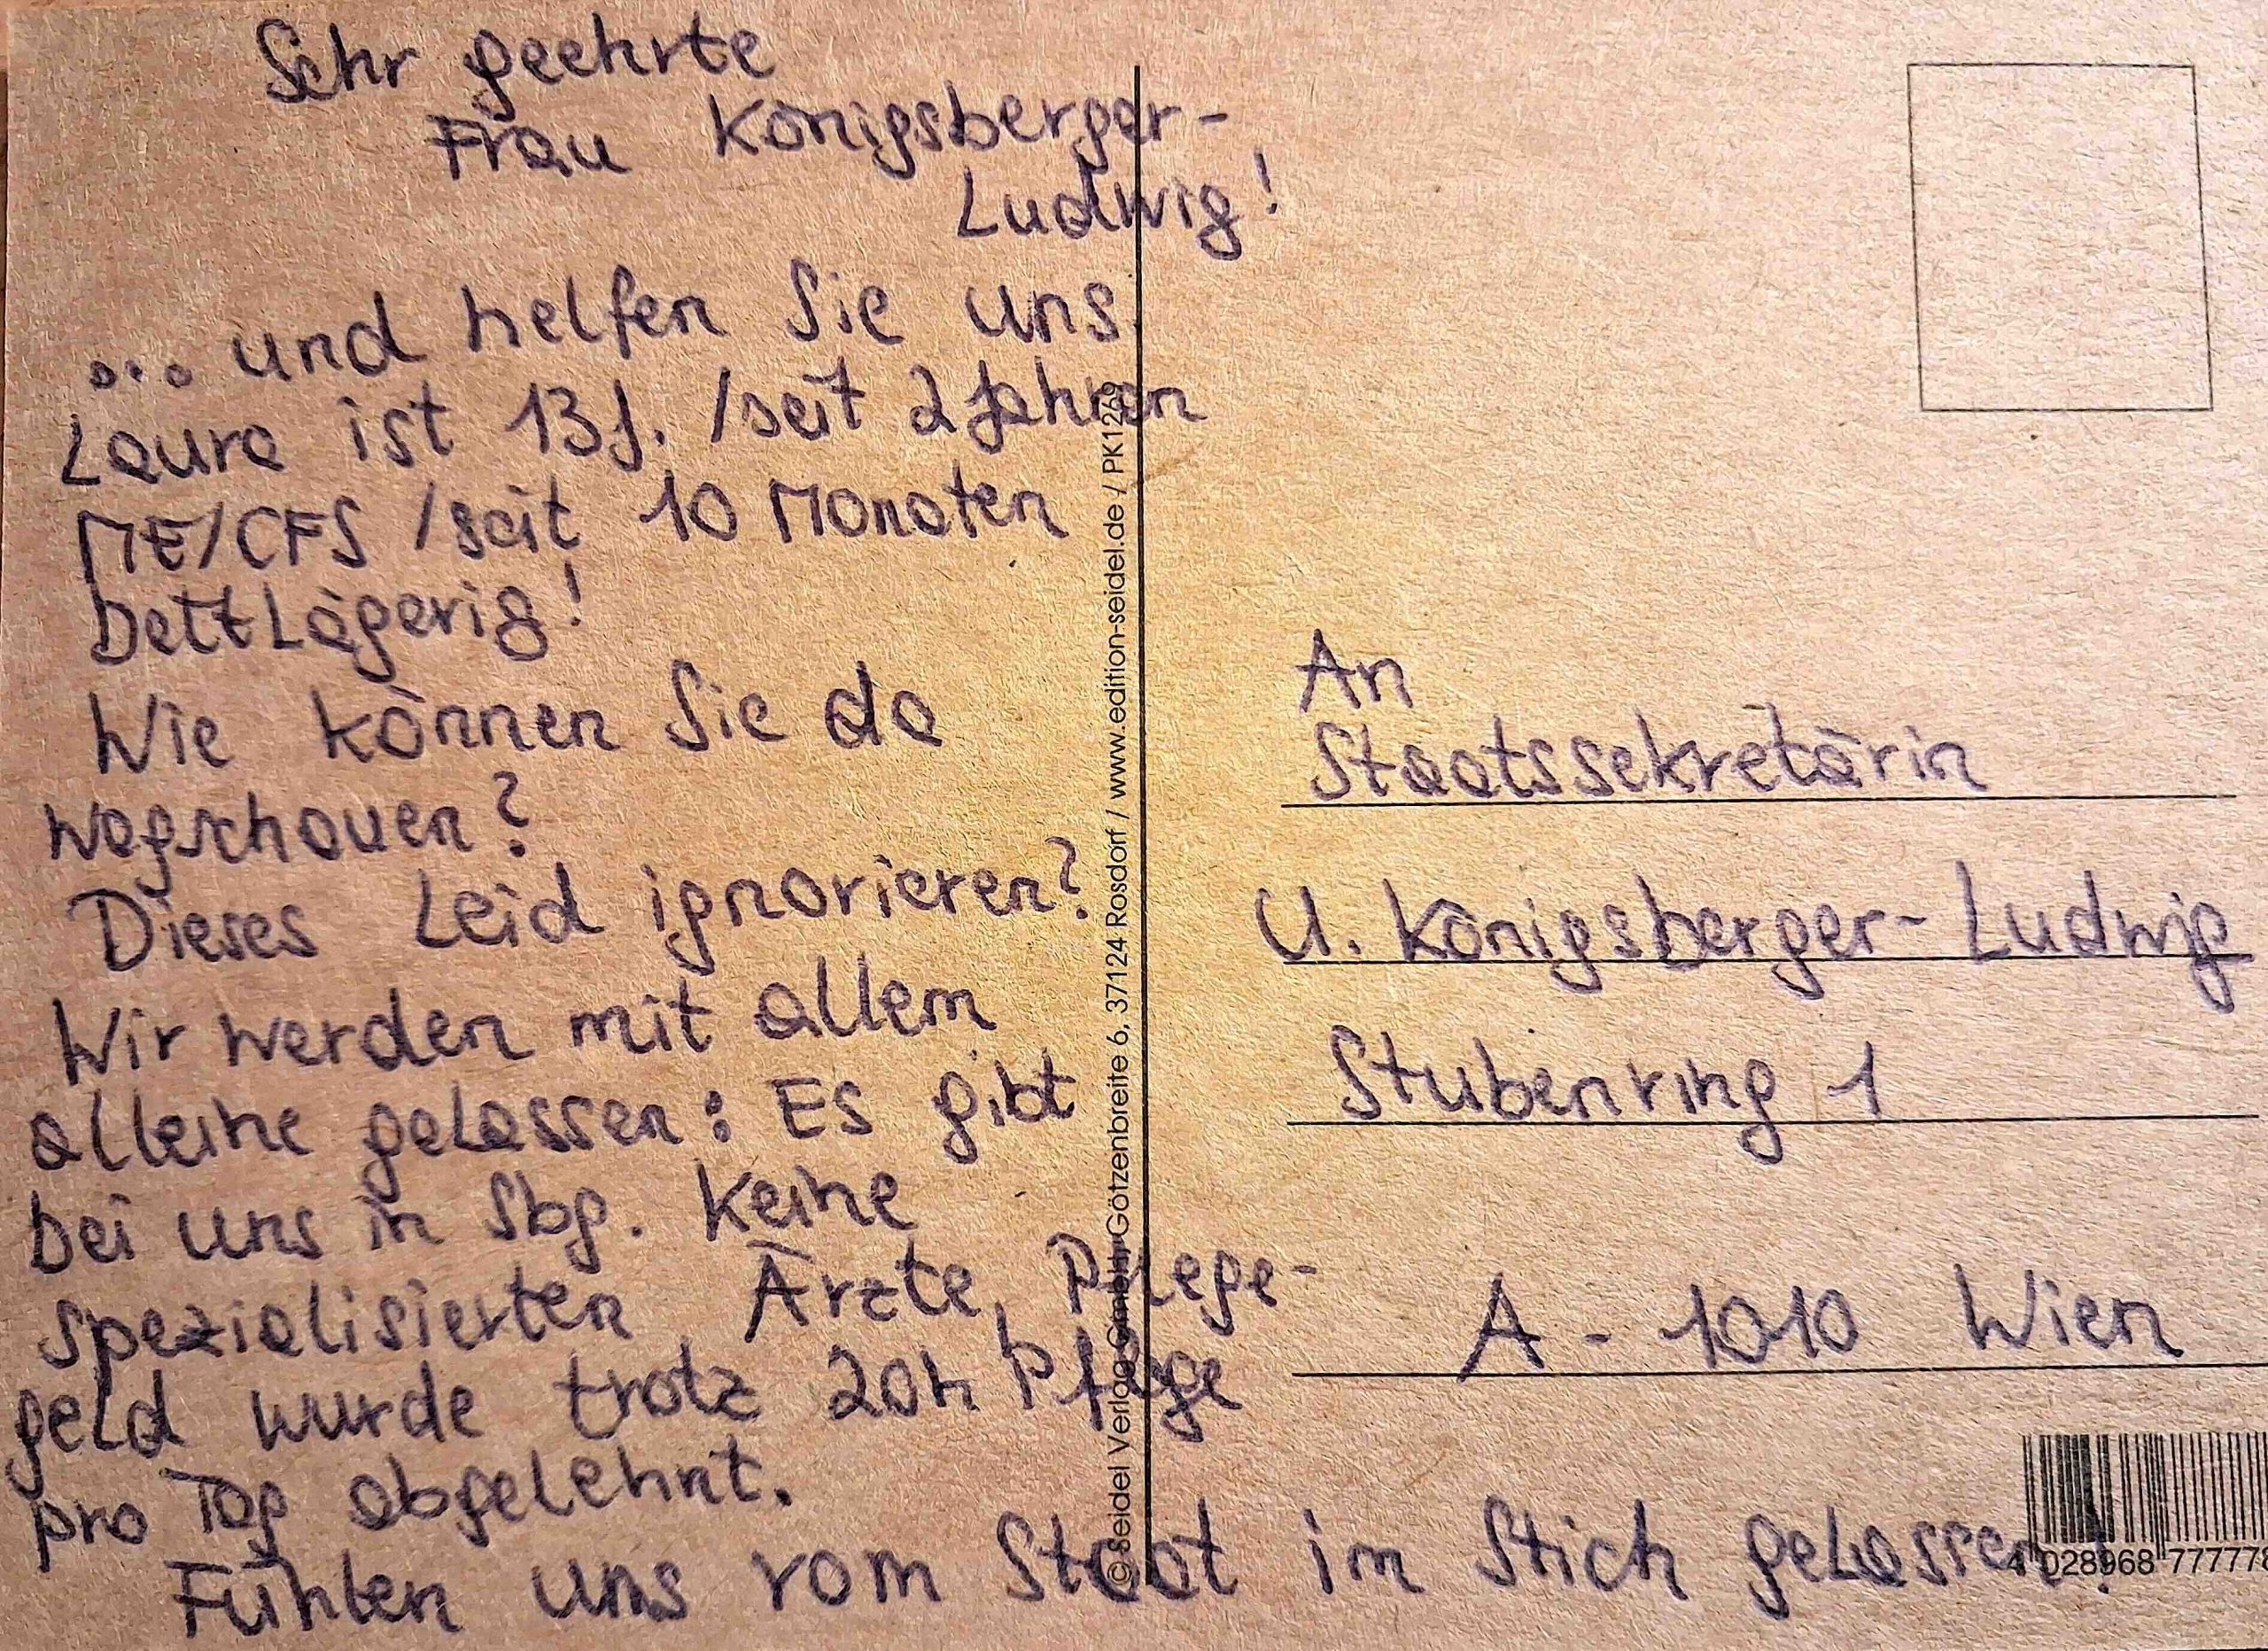 Sehr geehrte
Frau Königsberger-
Ludwig!
... und helfen Sie uns.
Laura ist 13J. /seit 2 Jahren
ME/CFS /seit 10 Monaten
bettlägerig!
Wie können Sie da
wegschauen?
Dieses Leid ignorieren?
Wir werden mit allem
alleine gelassen: Es gibt
bei uns in Sbg. keine
spezialisierten Ärzte, Pflege-
geld wurde trotz 20h Pflege
pro Tag abgelehnt.
Fühlen uns vom Staat im Stich gelassen!
© Seidel Verlag GmbH, Götzenbreite 6, 37124 Rosdorf / www.edition-seidel.de / PK1269
An
Staatssekretärin
U. Königsberger-Ludwig
Stubenring 1
A - 1010 Wien
4 028968 777778